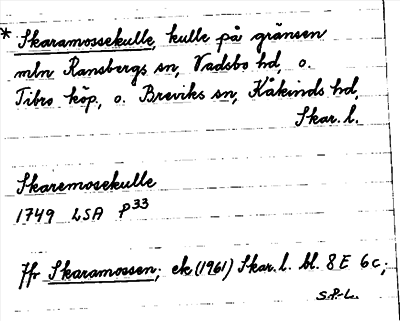 * Skaramossekulle, kulle på gränsen
mln Ransbergs sn, Vadsbo hd, o.
Tibro köp, o. Breviks sn, Kåkinds hd,
Skar. l.
Skaremosekulle
1749 LSA P33
Jfr Skaramossen; ek (1961) Skar. l. bl. 8E 6c;
S.P-L.